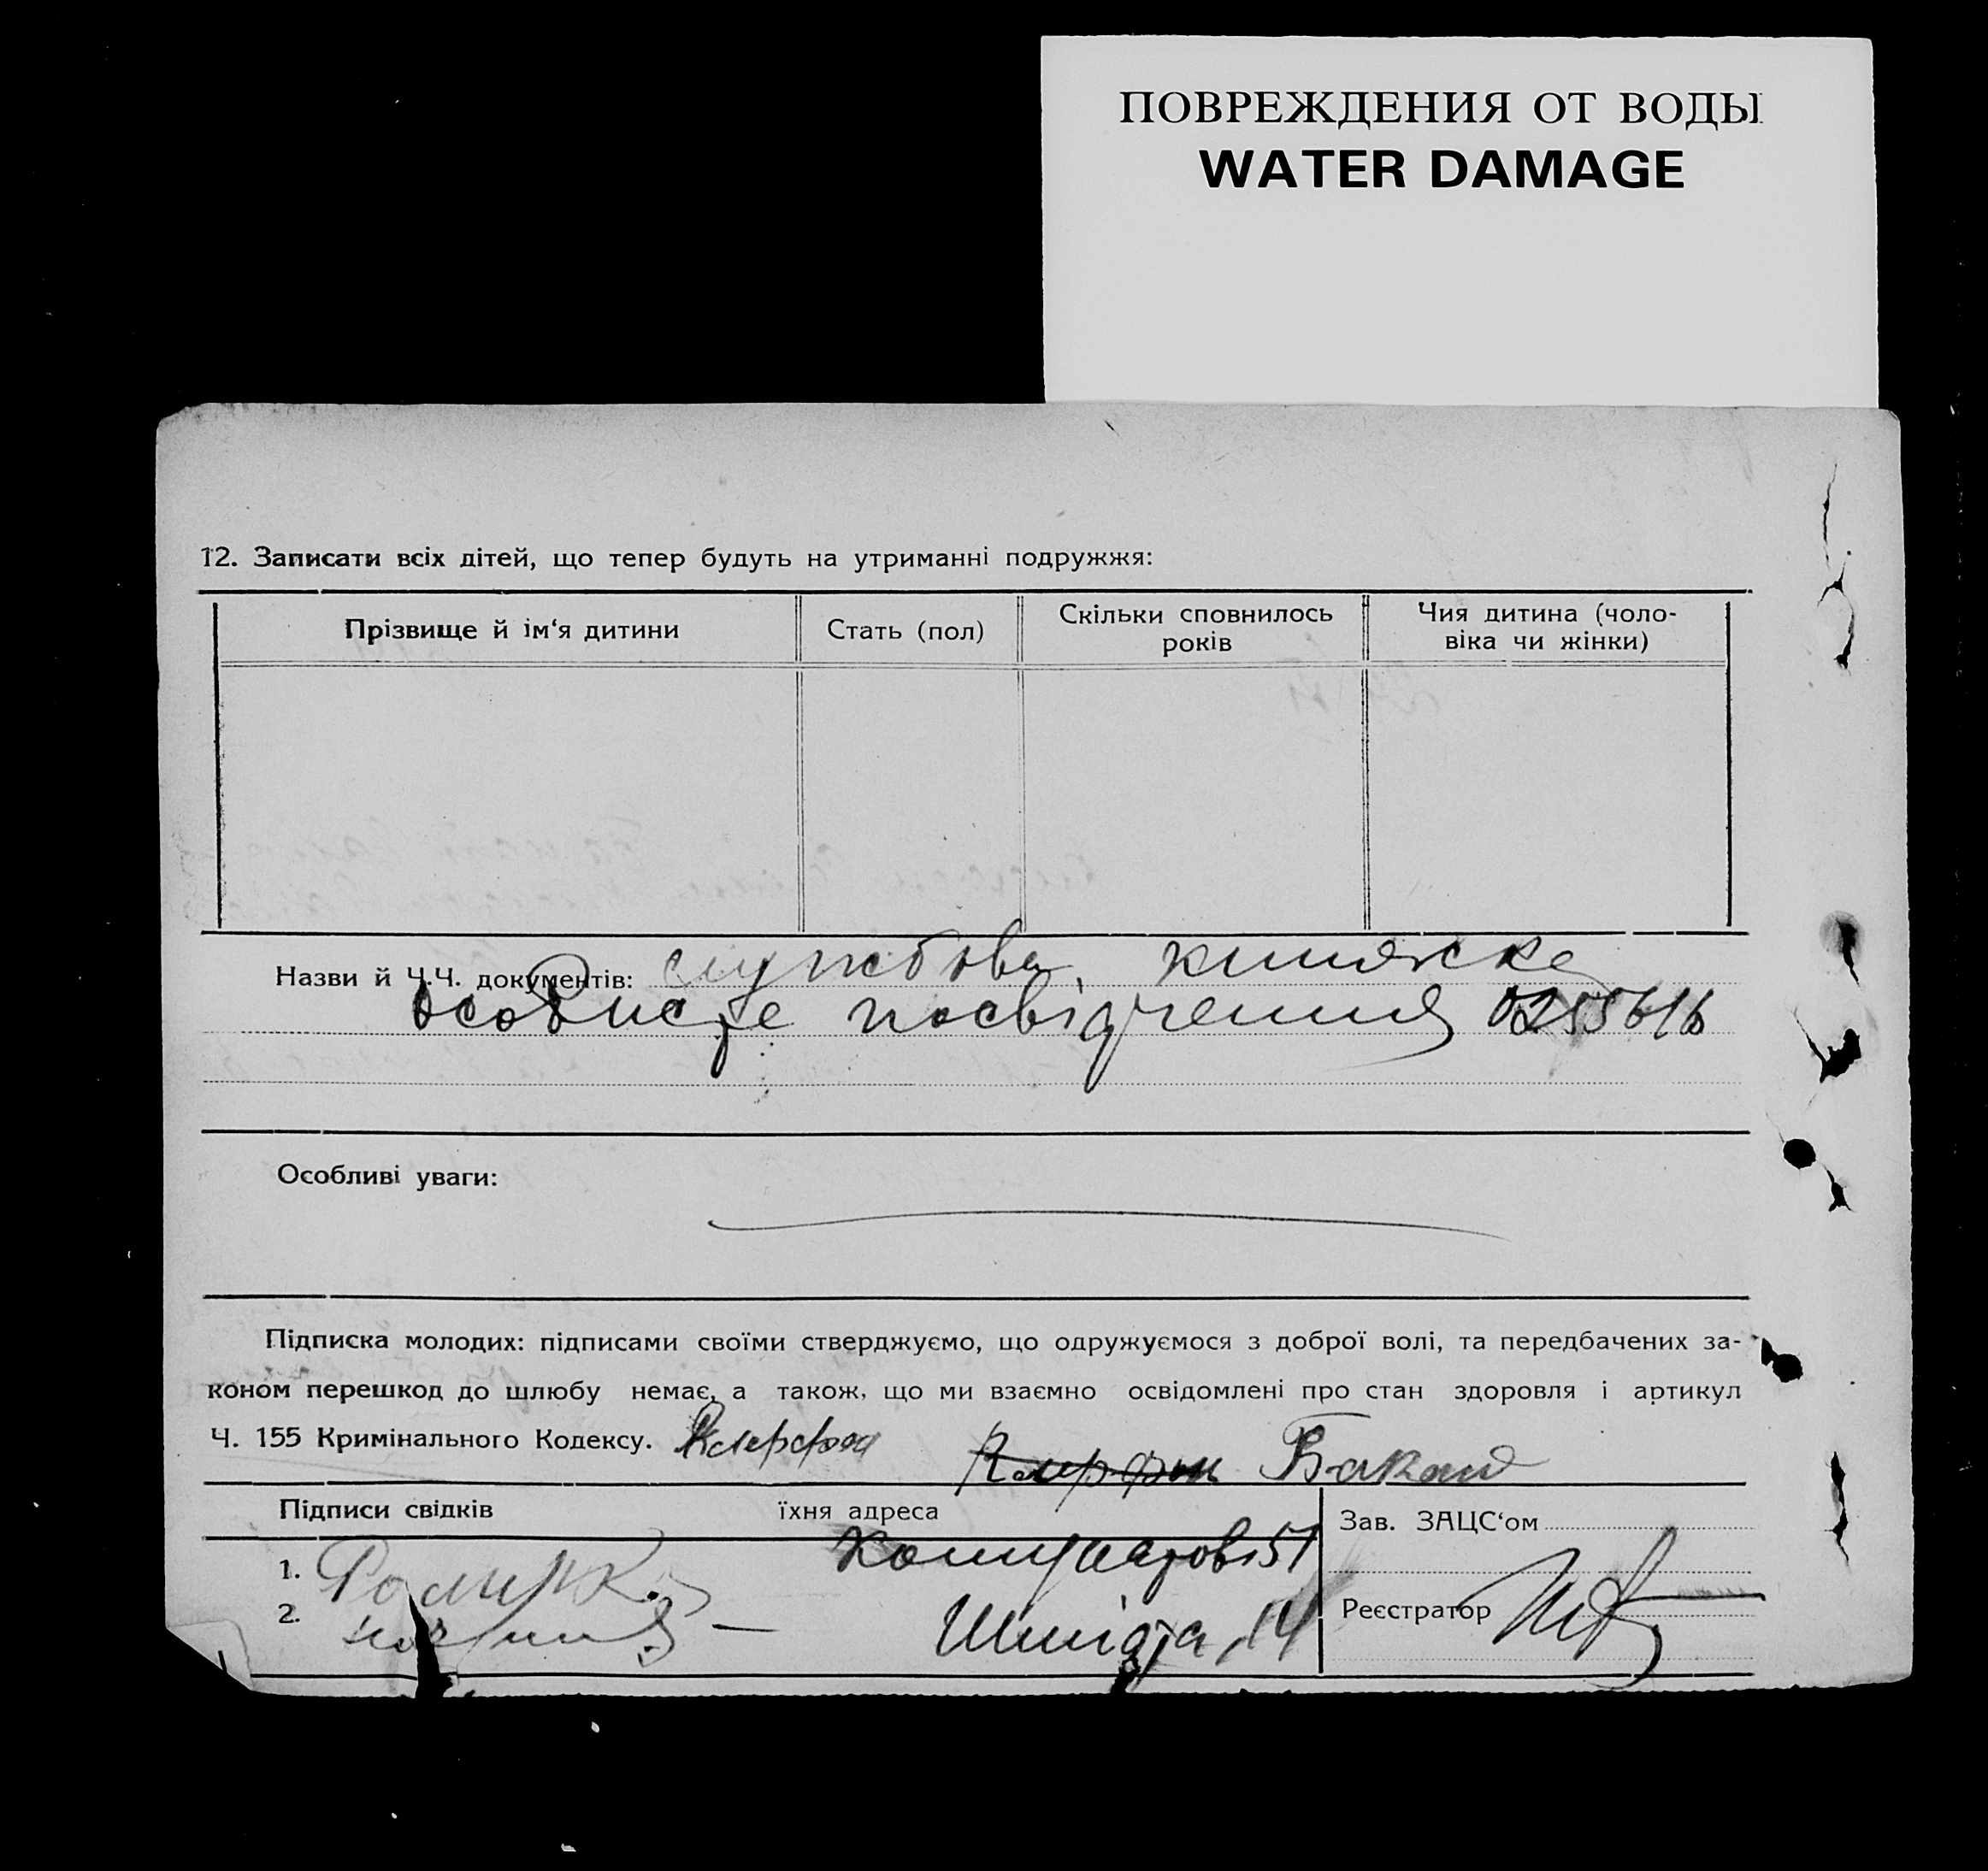 ПОВРЕЖДЕНИЯ ОТ ВОДЫ
WATER DAMAGE
12. Записати всіх дітей, що тепер будуть на утриманні подружжя:
Прізвище й ім‘я дитини
Стать (пол)
Скільки сповнилось
років
Чия дитина (чоло-
віка чи жінки)
Назви й Ч.Ч. документів: службова книжка
особисте посвідчення
Особливі уваги:
Підписка молодих: підписами своїми стверджуємо, що одружуємося з доброї волі, та передбачених за-
коном перешкод до шлюбу немає, а також, що ми взаємно освідомлені про стан здоровля і артикул
Ч. 155 Кримінального Кодексу.
Підписи свідків
їхня адреса
Зав. ЗАЦС‘ом
1.
51
2.
Шмідта, 14
Реєстратор